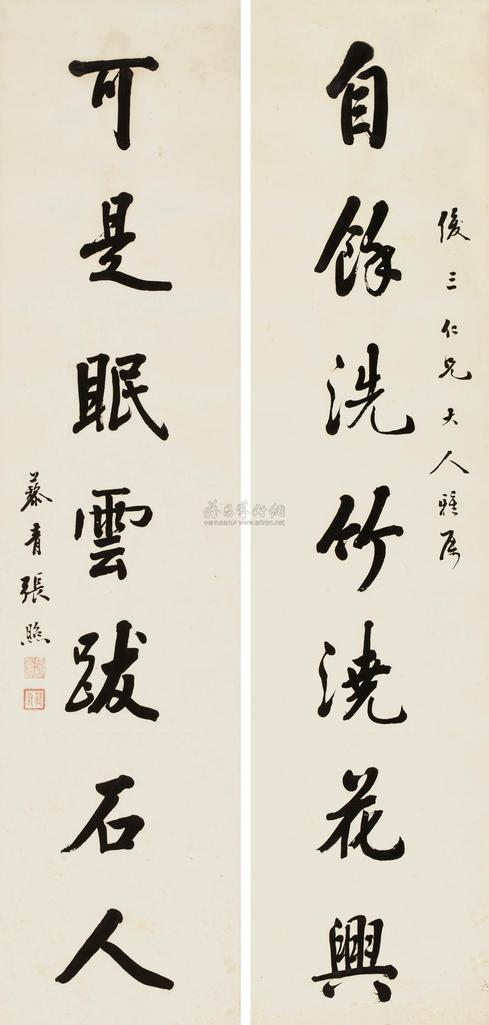 俊三仁兄大人雅属
自餘洗竹澆花興
可是眠雲跋石人
慕青張
雅昌藝術網
www.artron.net